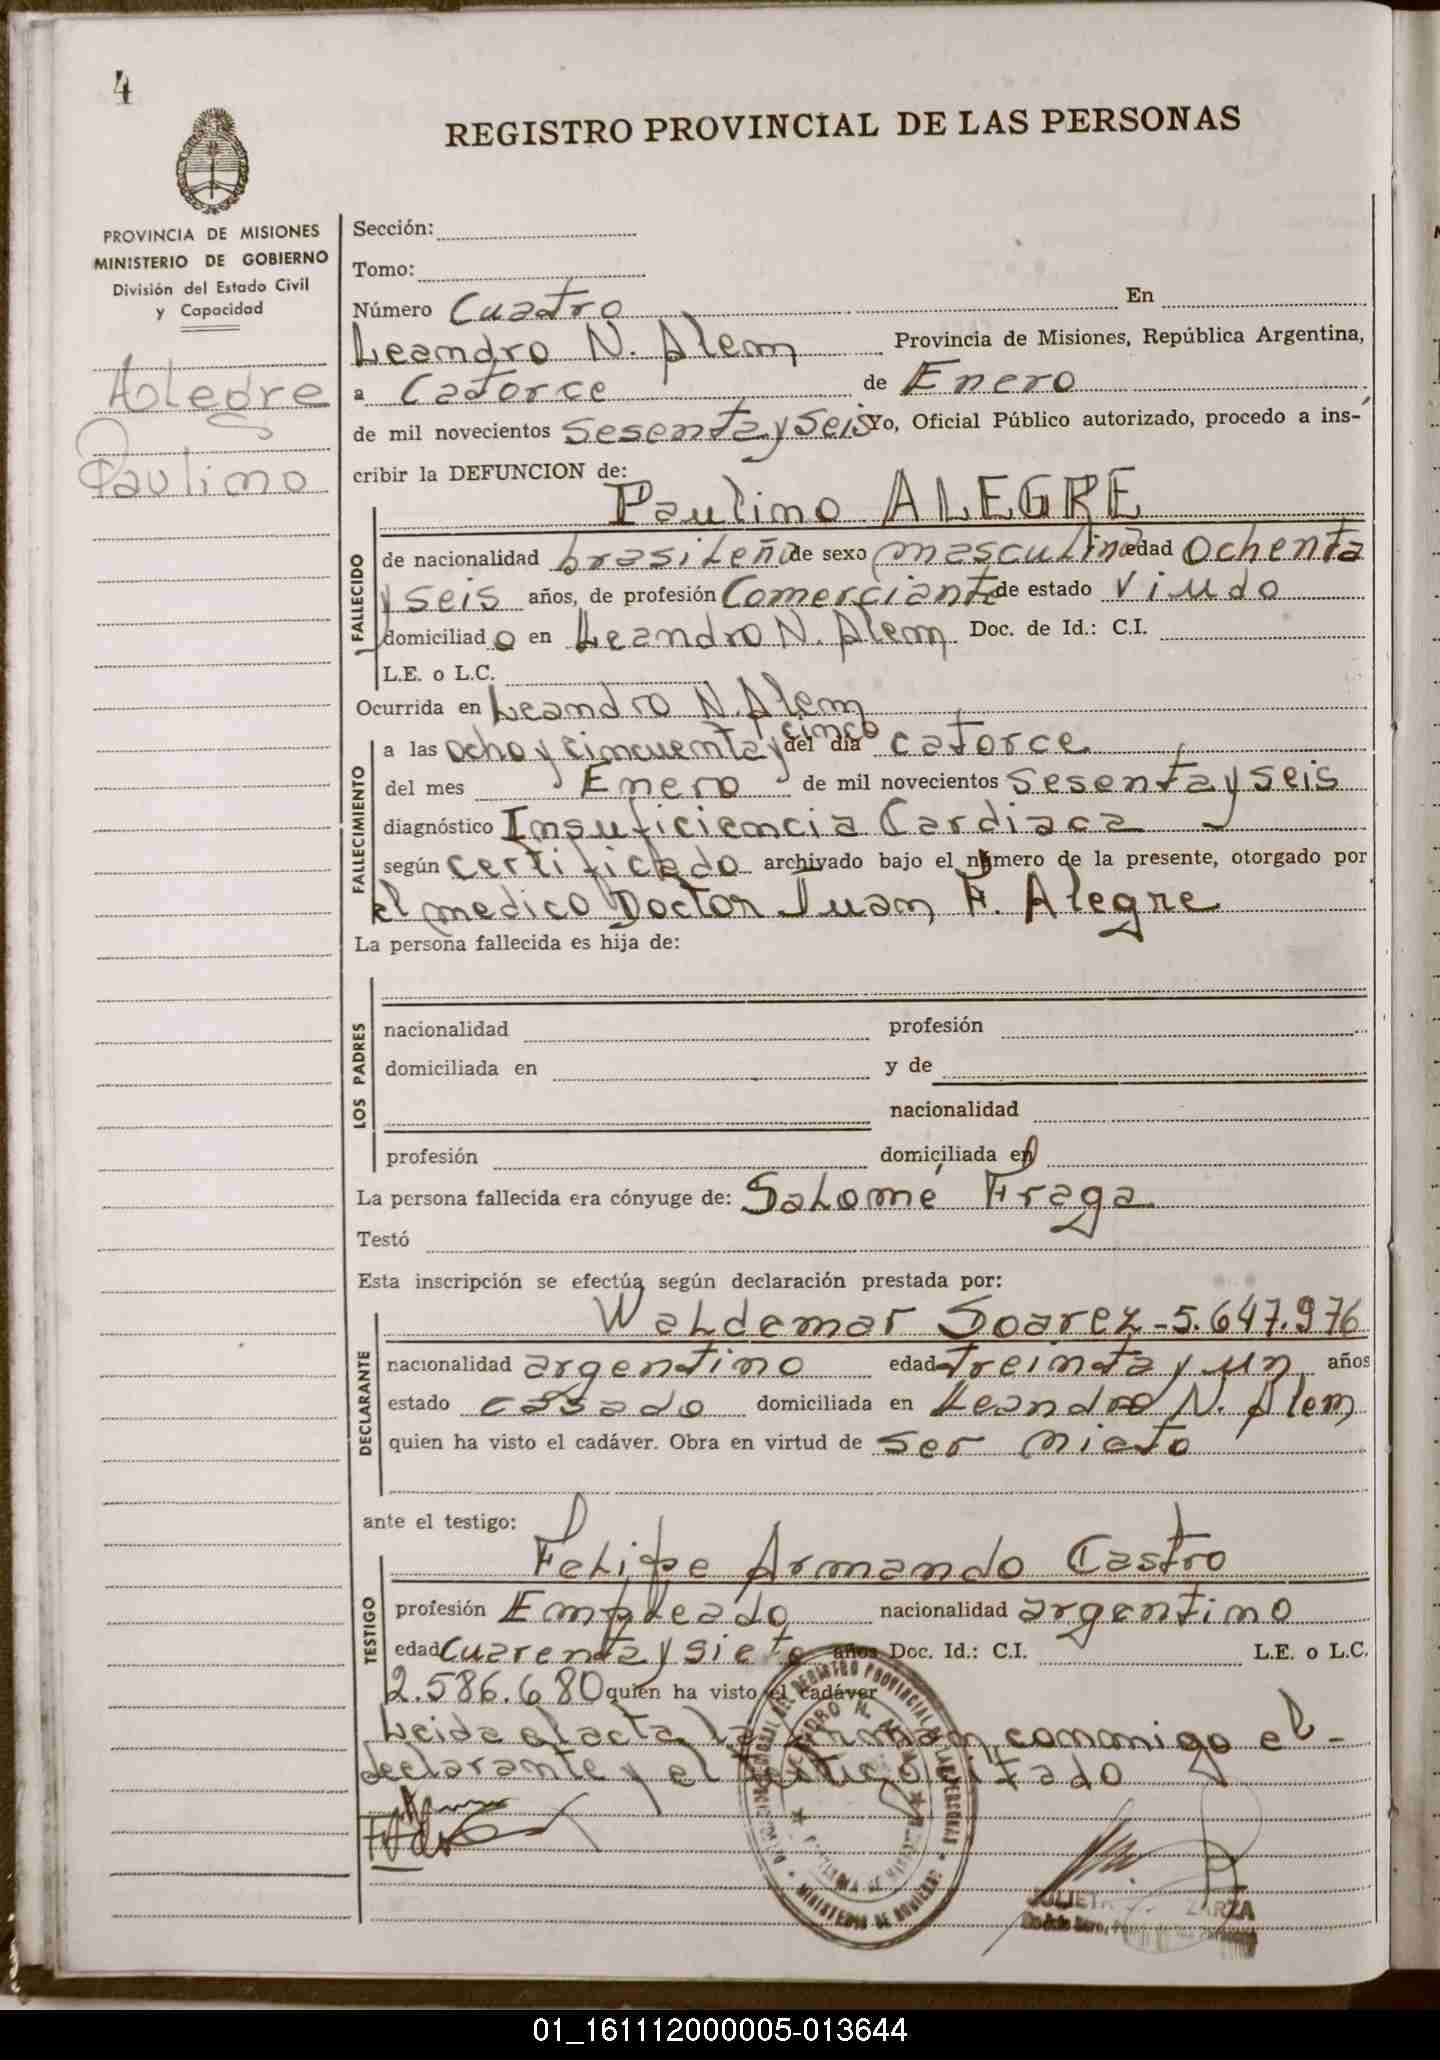 4
REGISTRO PROVINCIAL DE LAS PERSONAS
PROVINCIA DE MISIONES
MINISTERIO DE GOBIERNO
División del Estado Civil
y Capacidad
Alegre
Paulino
Sección:
Tomo:
Número Cuatro En
Leandro N. Alem Provincia de Misiones, República Argentina,
a Catorce de Enero
de mil novecientos sesenta y seis Yo, Oficial Público autorizado, procedo a ins-
cribir la DEFUNCION de:
Paulino ALEGRE
FALLECIDO
de nacionalidad brasileña de sexo masculino edad ochenta
y seis años, de profesión Comerciante de estado viudo
domiciliado en Leandro N. Alem Doc. de Id.: C.I.
L.E. o L.C.
Ocurrida en Leandro N. Alem
FALLECIMIENTO
a las ocho y cincuenta y cinco del día catorce
del mes Enero de mil novecientos sesenta y seis
diagnóstico Insuficiencia Cardiaca
según certificado archivado bajo el número de la presente, otorgado por
el medico Doctor Juan F. Alegre
La persona fallecida es hija de:
LOS PADRES
nacionalidad profesión
domiciliada en y de
nacionalidad
profesión domiciliada en
La persona fallecida era cónyuge de: Salomé Fraga
Testó
Esta inscripción se efectúa según declaración prestada por:
DECLARANTE
Waldemar Soarez - 5.647.976
nacionalidad argentino edad treinta y un años
estado casado domiciliada en Leandro N. Alem
quien ha visto el cadáver. Obra en virtud de ser nieto
ante el testigo:
TESTIGO
Felipe Armando Castro
profesión Empleado nacionalidad argentino
edad cuarenta y siete años Doc. Id.: C.I. L.E. o L.C.
2.586.680 quien ha visto el cadáver
Leida el acta la firman conmigo el -
declarante y el testigo citado
MINISTERIO DE GOBIERNO
ZARZA
01_161112000005-013644